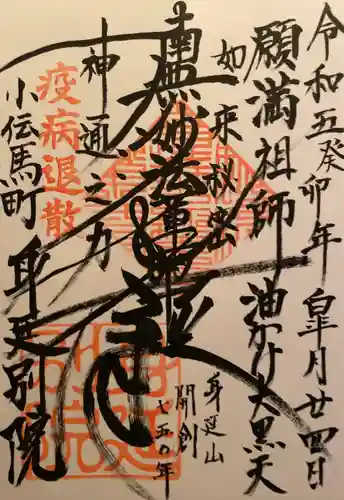 令和五癸卯年 皐月廿四日
願満祖師 油かけ大黒天
如来秘密
南無妙法蓮華経
神通之力
身延山
開創
七五〇年
疫病退散
小伝馬町 身延別院